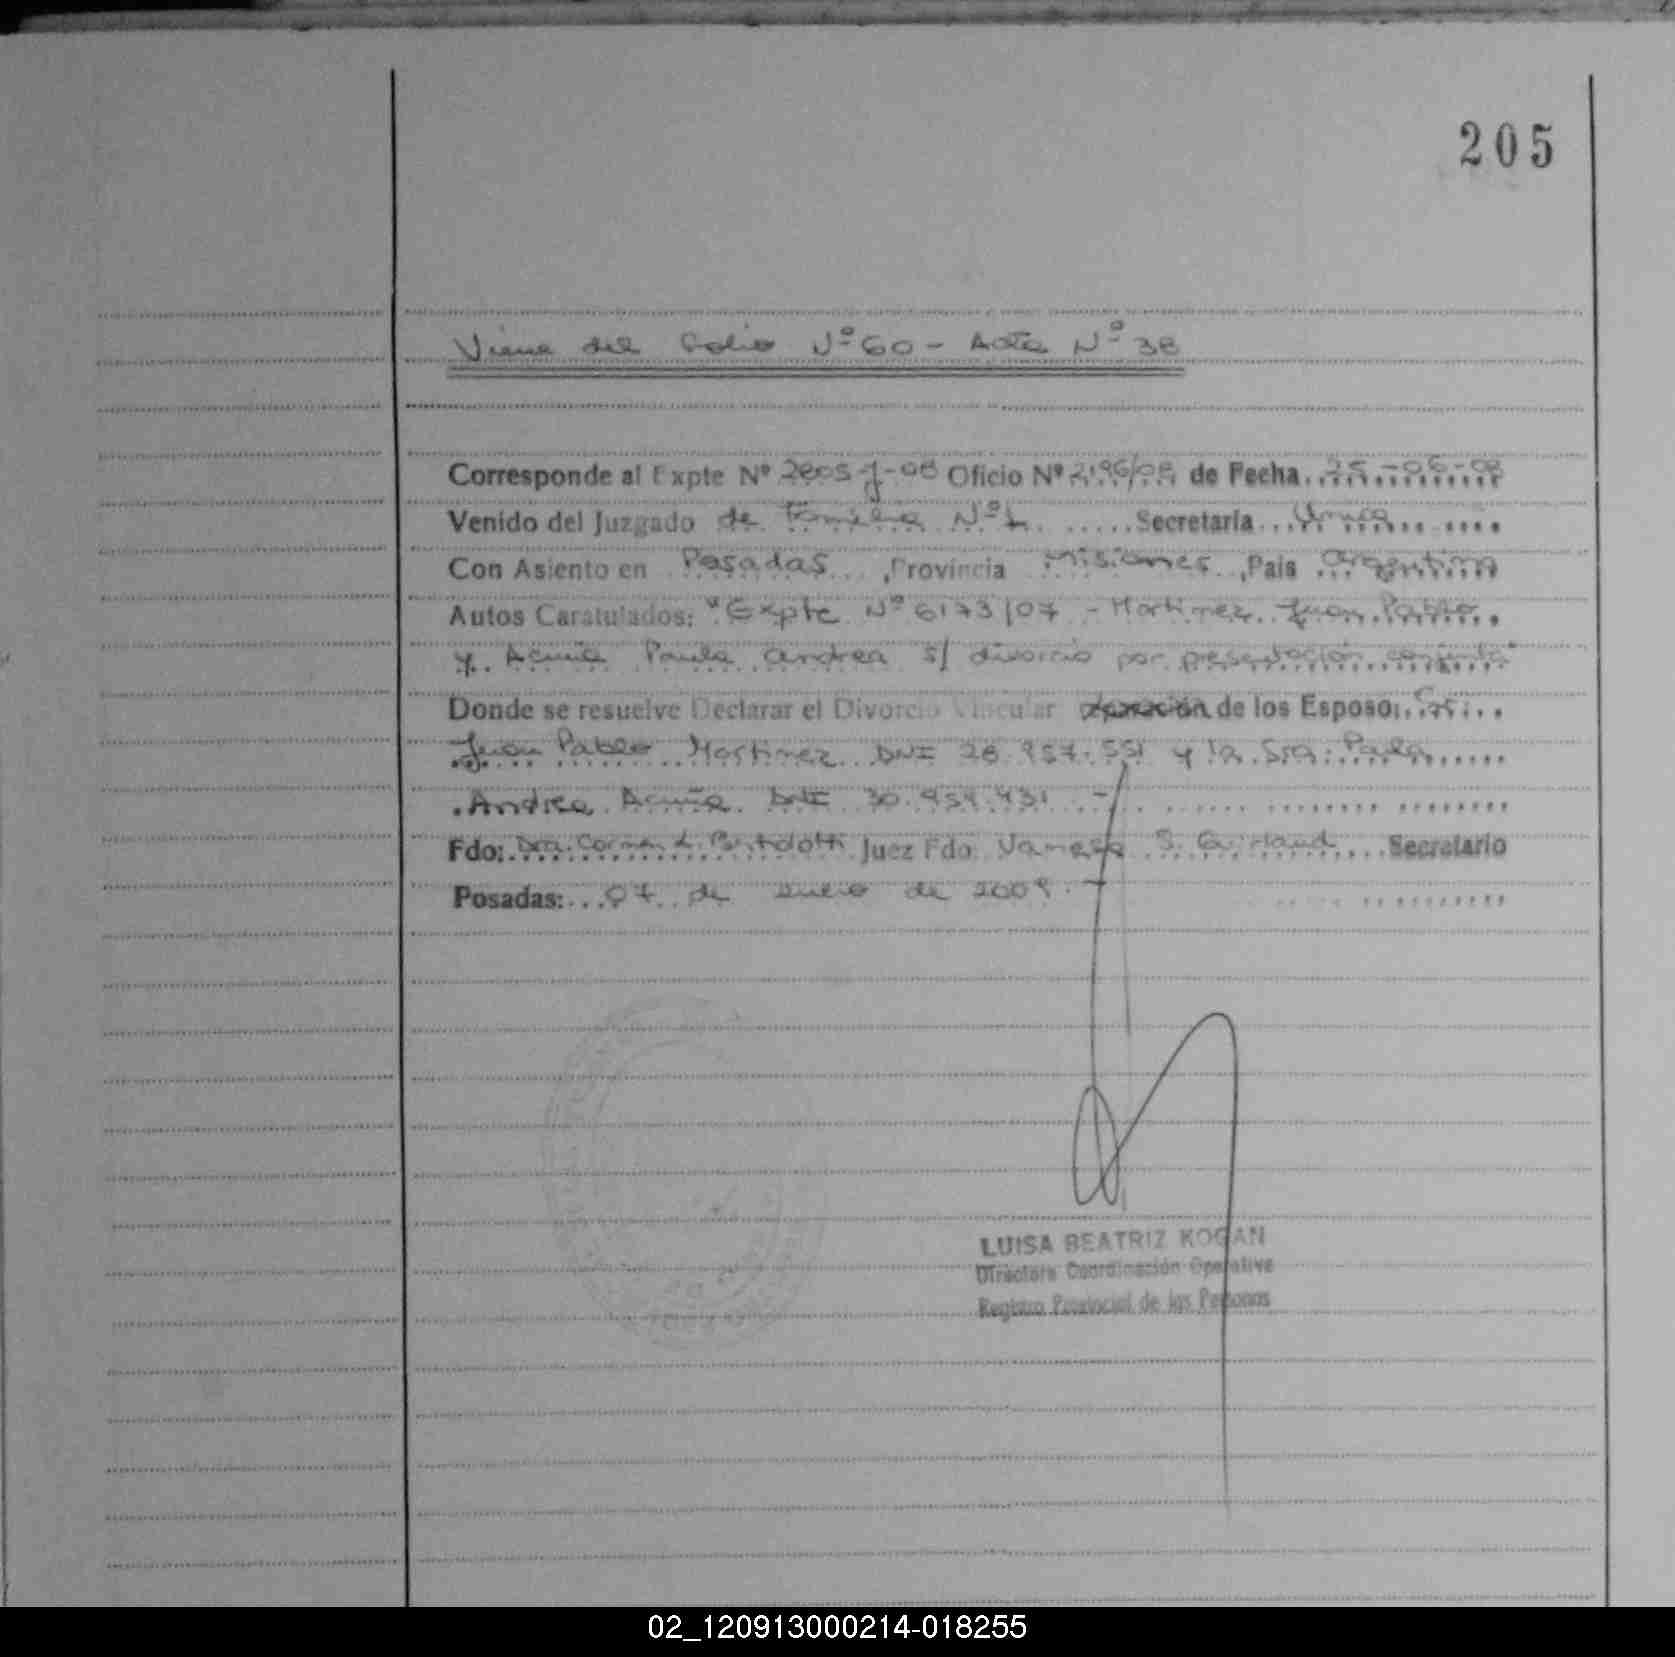 205
Viene del Folio Nº 60 - Acta Nº 38
Corresponde al Expte Nº 2805-J-08 Oficio Nº 2196/08 de Fecha 25-06-08
Venido del Juzgado de Familia Nº 1 Secretaria Unica
Con Asiento en Posadas, Provincia Misiones, Pais Argentina
Autos Caratulados: "Expte Nº 6173/07 - Martinez Juan Pablo
y Acuña Paula Andrea s/ divorcio por presentación conjunta"
Donde se resuelve Declarar el Divorcio Vincular de los Esposo: Sr.
Juan Pablo Martinez DNI 28.957.551 y la Sra. Paula
Andrea Acuña DNI 30.959.931 -
Fdo: Dra. Carmen L. Juez Fdo: Vanesa S. Secretario
Posadas: 07 de enero de 2009.-
LUISA BEATRIZ KOGAN
Directora Coordinación Operativa
Registro Provincial de las Personas
02_120913000214-018255